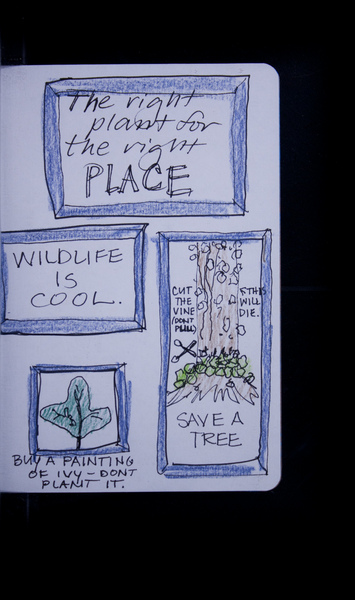 The right
plant for
the right
PLACE
WILDLIFE
IS
COOL.
CUT
THE
VINE
(DONT
PULL)
& THIS
WILL
DIE.
SAVE A
TREE
BUY A PAINTING
OF IVY - DONT
PLANT IT.